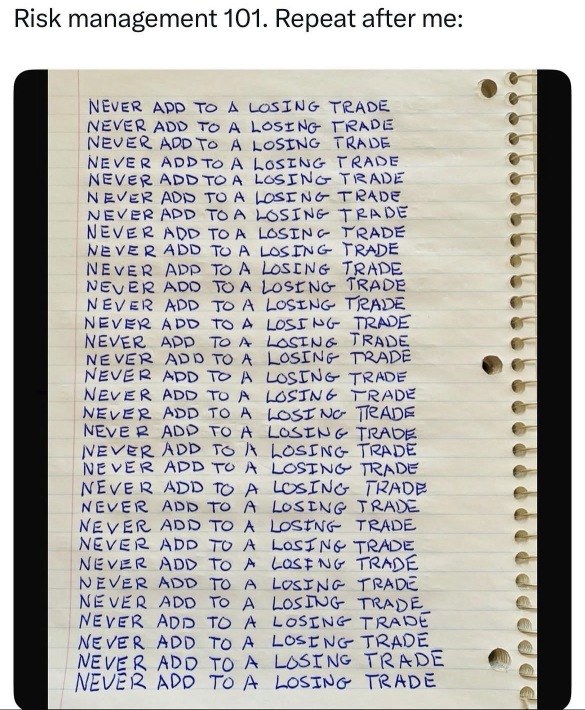 Risk management 101. Repeat after me:
NEVER ADD TO A LOSING TRADE
NEVER ADD TO A LOSING TRADE
NEVER ADD TO A LOSING TRADE
NEVER ADD TO A LOSING TRADE
NEVER ADD TO A LOSING TRADE
NEVER ADD TO A LOSING TRADE
NEVER ADD TO A LOSING TRADE
NEVER ADD TO A LOSING TRADE
NEVER ADD TO A LOSING TRADE
NEVER ADD TO A LOSING TRADE
NEVER ADD TO A LOSING TRADE
NEVER ADD TO A LOSING TRADE
NEVER ADD TO A LOSING TRADE
NEVER ADD TO A LOSING TRADE
NEVER ADD TO A LOSING TRADE
NEVER ADD TO A LOSING TRADE
NEVER ADD TO A LOSING TRADE
NEVER ADD TO A LOSING TRADE
NEVER ADD TO A LOSING TRADE
NEVER ADD TO A LOSING TRADE
NEVER ADD TO A LOSING TRADE
NEVER ADD TO A LOSING TRADE
NEVER ADD TO A LOSING TRADE
NEVER ADD TO A LOSING TRADE
NEVER ADD TO A LOSING TRADE
NEVER ADD TO A LOSING TRADE
NEVER ADD TO A LOSING TRADE
NEVER ADD TO A LOSING TRADE
NEVER ADD TO A LOSING TRADE
NEVER ADD TO A LOSING TRADE
NEVER ADD TO A LOSING TRADE
NEVER ADD TO A LOSING TRADE